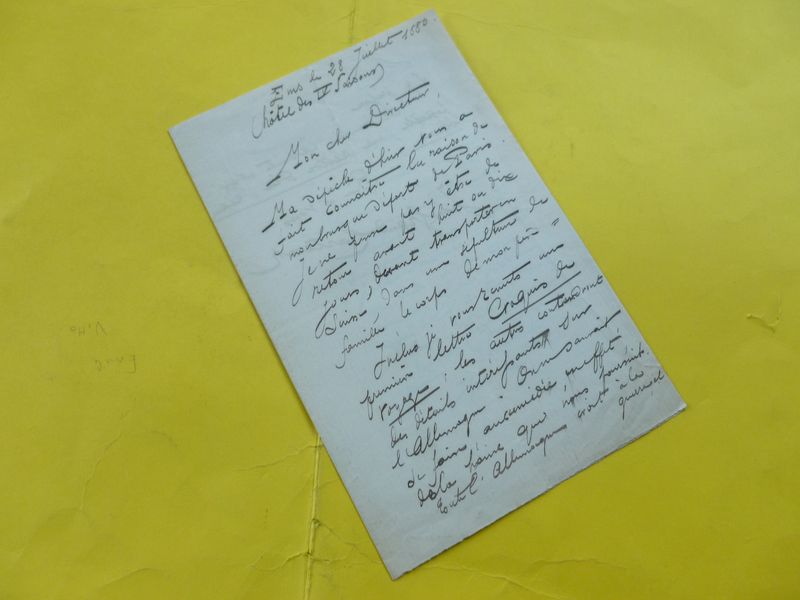 Ems le 28 Juillet 1880
(hôtel des IV Saisons)
Mon cher Directeur,
Ma dépêche d'hier vous a
fait connaître la raison de
mon brusque départ de Paris.
Je ne pense pas y être de
retour avant huit ou dix
jours, devant transporter en
Suisse, dans une sépulture de
famille le corps de mon père =
Inclus je vous envoie une
première lettre Croquis de
voyage; les autres contiendront
des détails intéressants sur
l'Allemagne. On ne saurait
se faire une idée, en effet,
de la haine qui nous poursuit.
Toute l'Allemagne croit à la
guerre, et